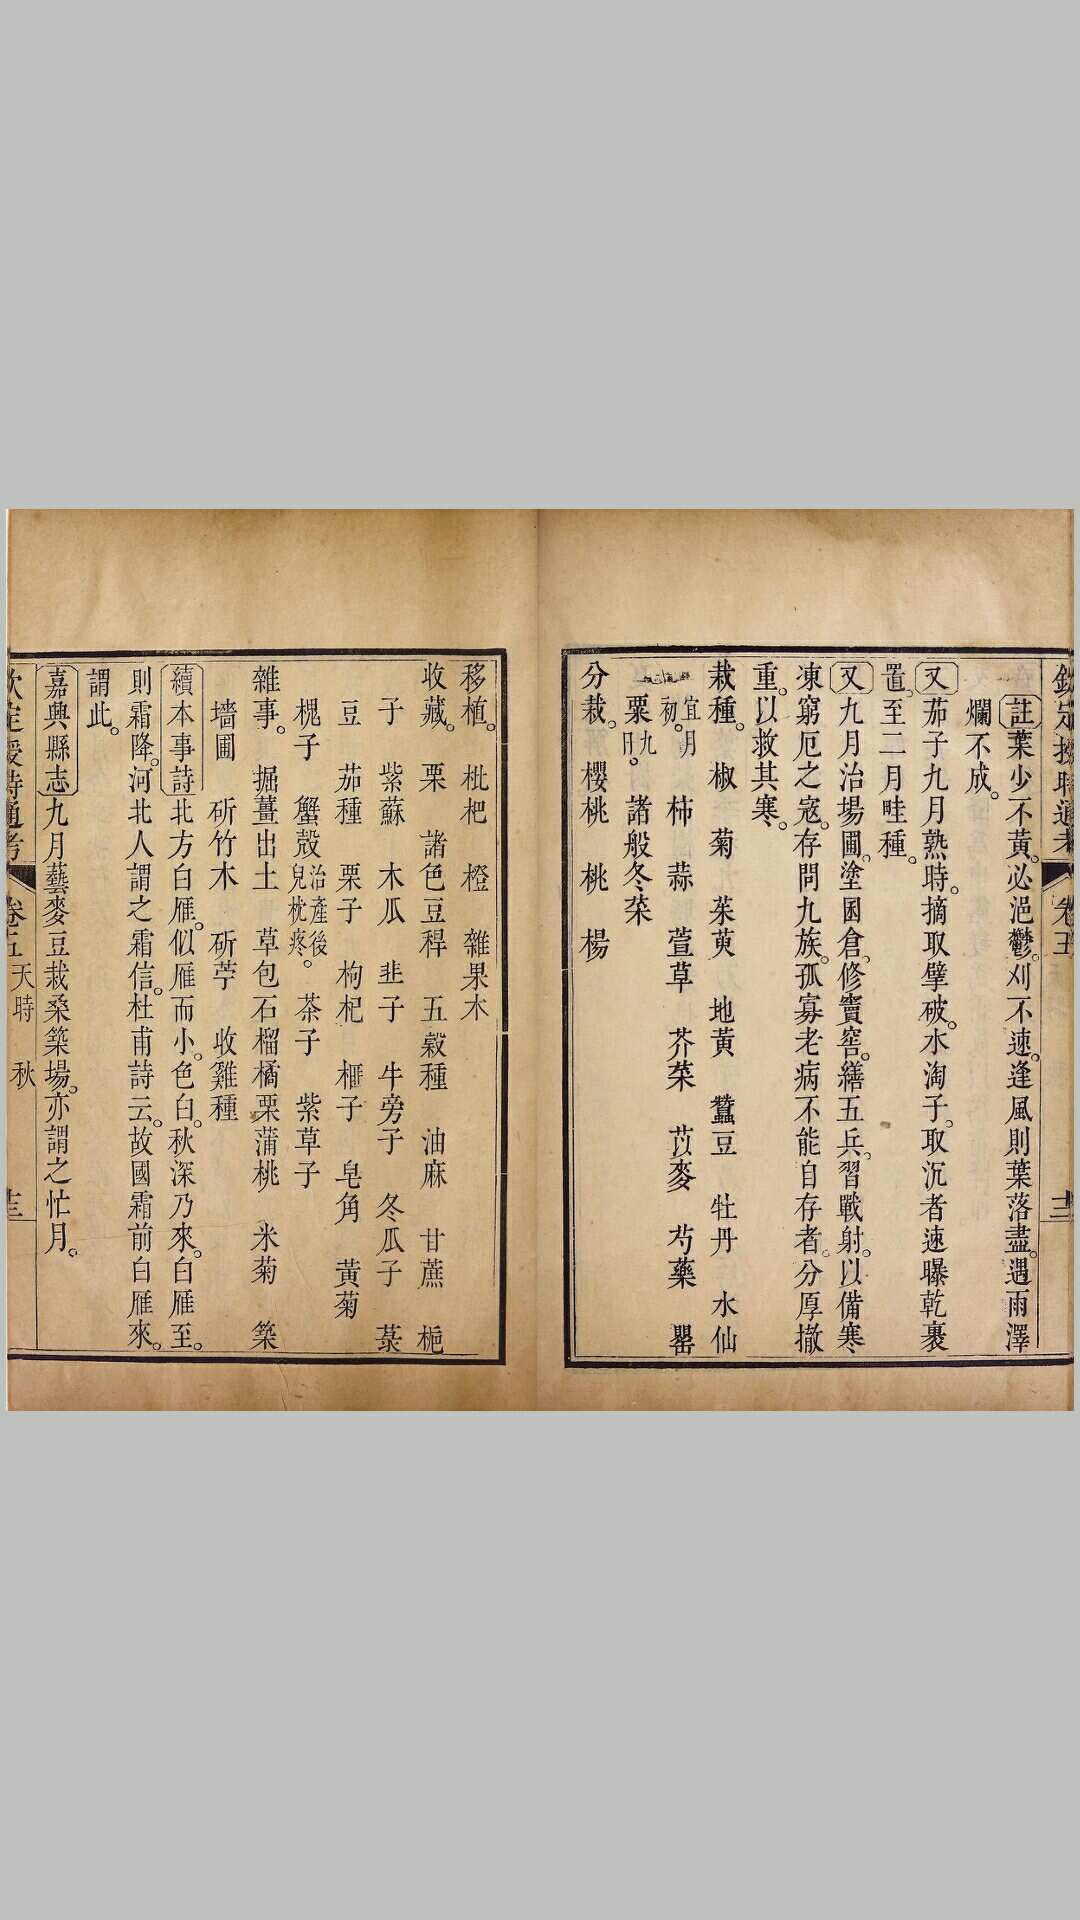 欽定授時通考 卷五 十二
註葉少不黃。必浥鬱。刈不速。逢風則葉落盡。遇雨澤
爛不成。
又茄子九月熟時。摘取擘破。水淘子。取沉者速曝乾裹
置。至二月畦種。
又九月治場圃。塗囷倉。修竇窖。繕五兵。習戰射。以備寒
凍窮厄之寇。存問九族。孤寡老病不能自存者。分厚撤
重。以救其寒。
栽種。 椒 菊 茱萸 地黃 蠶豆 牡丹 水仙
宜月初。 柿 蒜 萱草 芥菜 苡麥 芍藥 罌
粟九日。 諸般冬菜
分栽。 櫻桃 桃 楊
移植。 枇杷 橙 雜果木
收藏。 栗 諸色豆稈 五穀種 油麻 甘蔗 梔
子 紫蘇 木瓜 韭子 牛旁子 冬瓜子 菉
豆 茄種 栗子 枸杞 榧子 皂角 黃菊
槐子 蟹殼治產後兒枕疼。 茶子 紫草子
雜事。 掘薑出土 草包石榴橘栗蒲桃 米菊 築
墻圃 斫竹木 斫苧 收雞種
續本事詩北方白雁。似雁而小。色白。秋深乃來。白雁至。
則霜降。河北人謂之霜信。杜甫詩云。故國霜前白雁來。
謂此。
嘉興縣志九月藝麥豆栽桑築場。亦謂之忙月。
欽定授時通考 卷五 天時 秋 十三